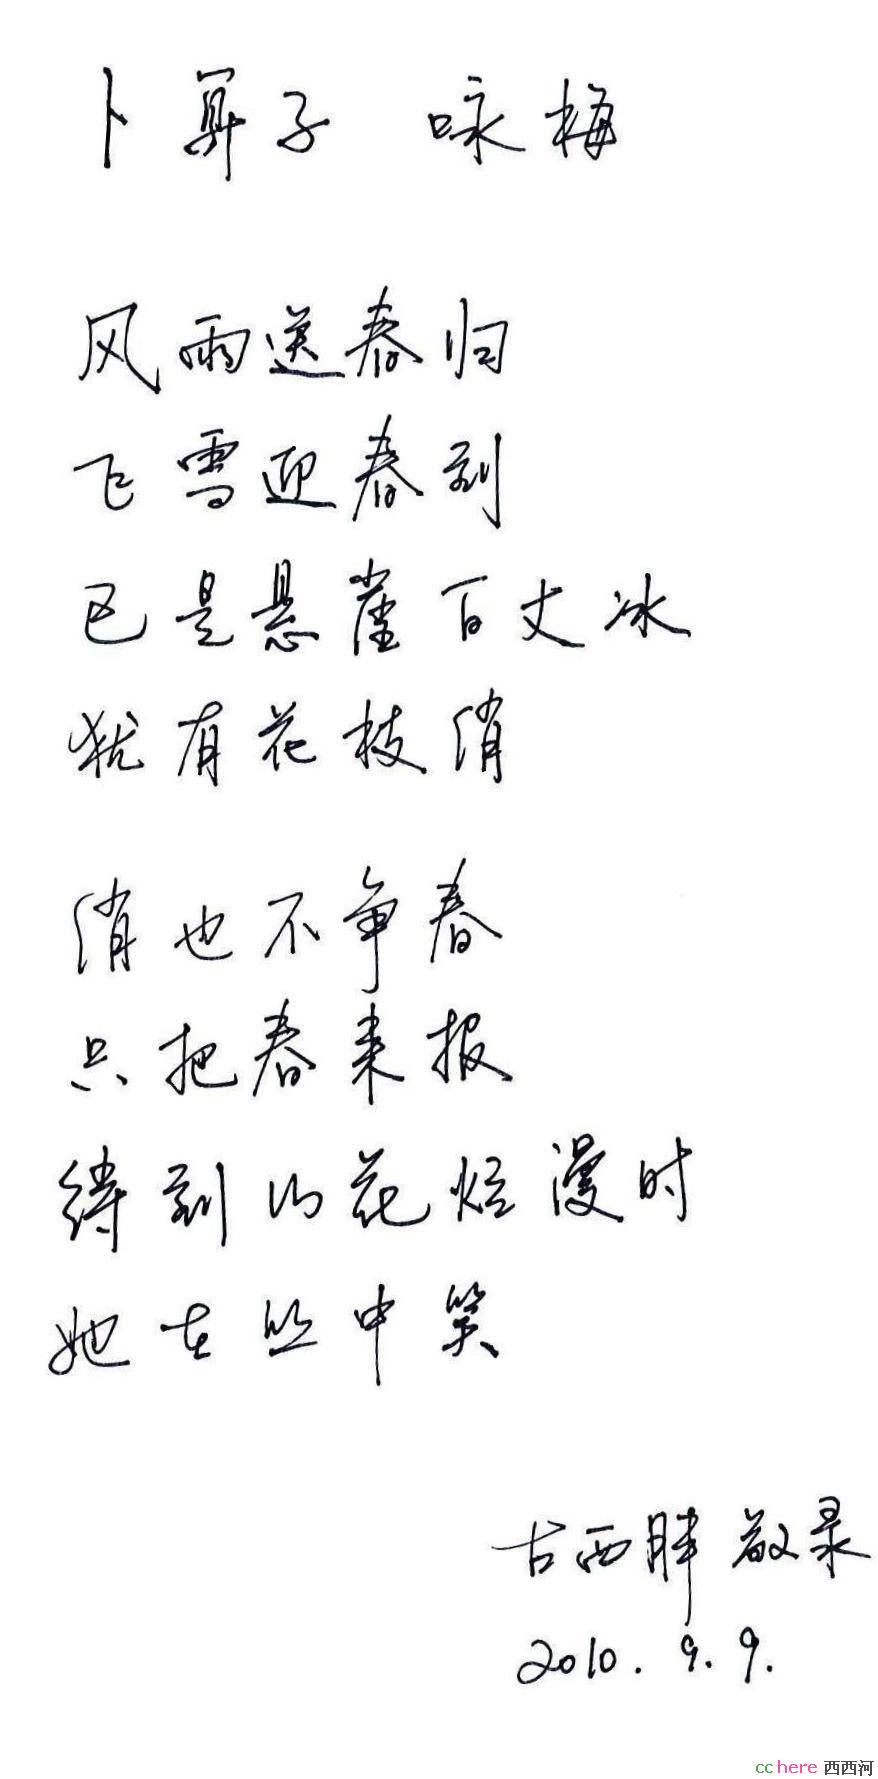 卜算子 咏梅
风雨送春归
飞雪迎春到
已是悬崖百丈冰
犹有花枝俏
俏也不争春
只把春来报
待到山花烂漫时
她在丛中笑
古西胖 敬录
2010.9.9.
cchere 西西河